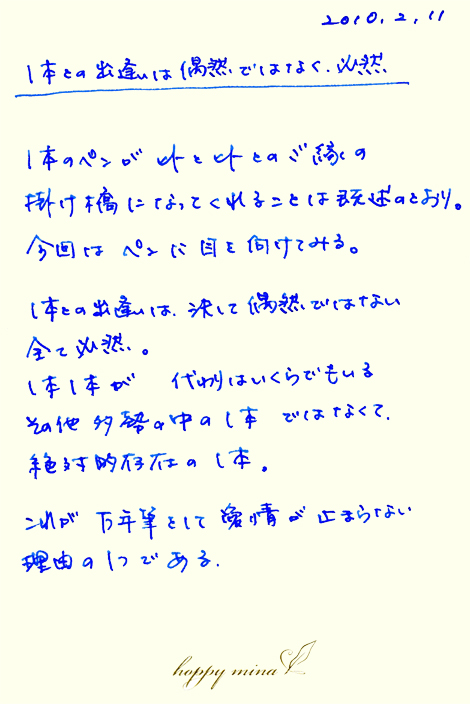 2010.2.11
1本との出逢いは偶然ではなく、必然
1本のペンが 人と人とのご縁の
掛け橋になってくれることは既述のとおり。
今回は ペンに目を向けてみる。
1本との出逢いは、決して偶然ではない
全て必然。
1本1本が 代わりはいくらでもいる
その他多勢の中の1本 ではなくて、
絶対的存在の1本。
これが 万年筆として 愛情が止まらない
理由の1つである。
happy mina